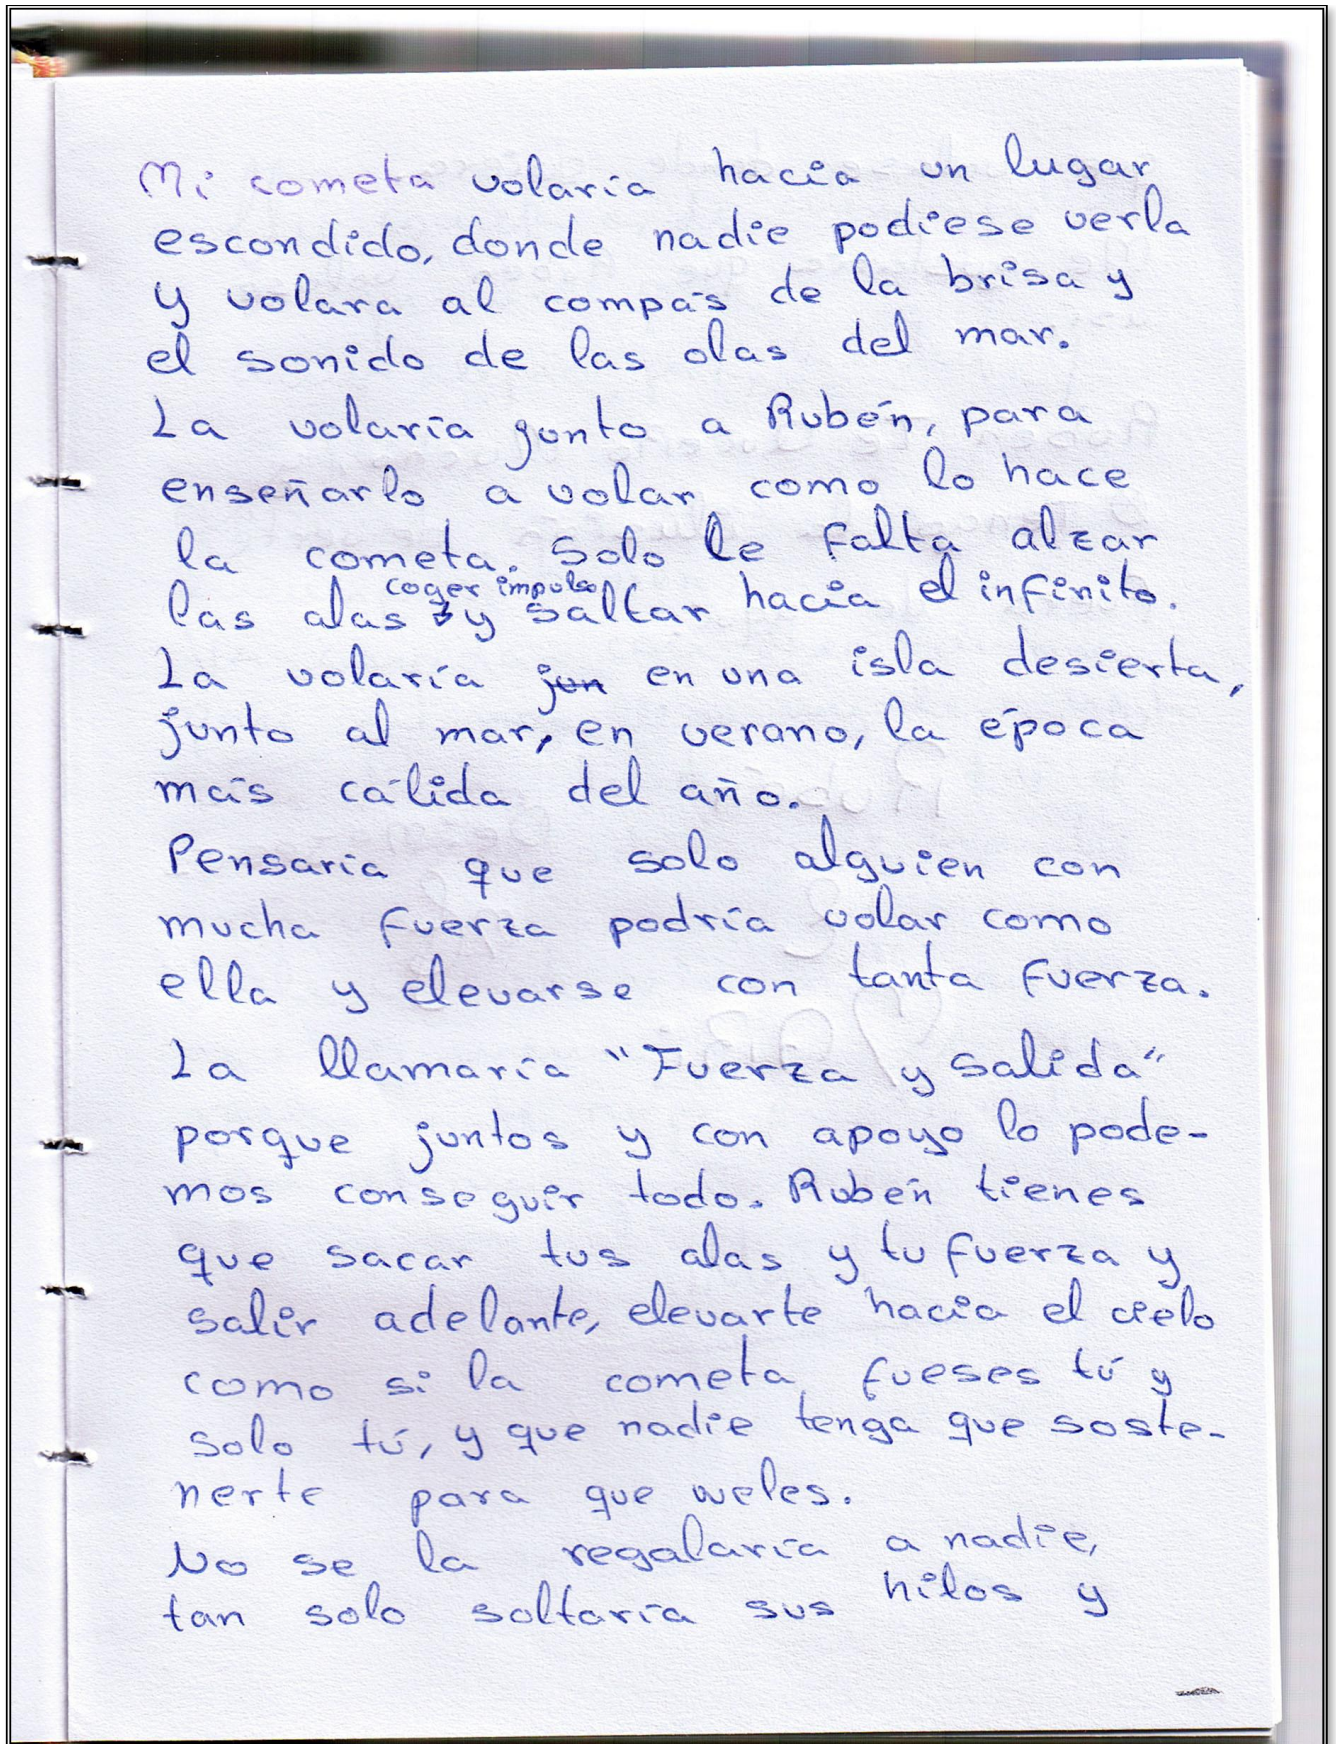 Mi cometa volaría hacia un lugar
escondido, donde nadie pudiese verla
y volara al compás de la brisa y
el sonido de las olas del mar.
La volaría junto a Rubén, para
enseñarlo a volar como lo hace
la cometa. Solo le falta alzar
coger impulso
las alas y saltar hacia el infinito.
La volaría jun en una isla desierta,
junto al mar, en verano, la época
más cálida del año.
Pensaría que solo alguien con
mucha fuerza podría volar como
ella y elevarse con tanta fuerza.
La llamaría "Fuerza y salida"
porque juntos y con apoyo lo pode-
mos conseguir todo. Rubén tienes
que sacar tus alas y tu fuerza y
salir adelante, elevarte hacia el cielo
como si la cometa fueses tú y
solo tú, y que nadie tenga que soste-
nerte para que vueles.
No se la regalaría a nadie,
tan solo soltaría sus hilos y